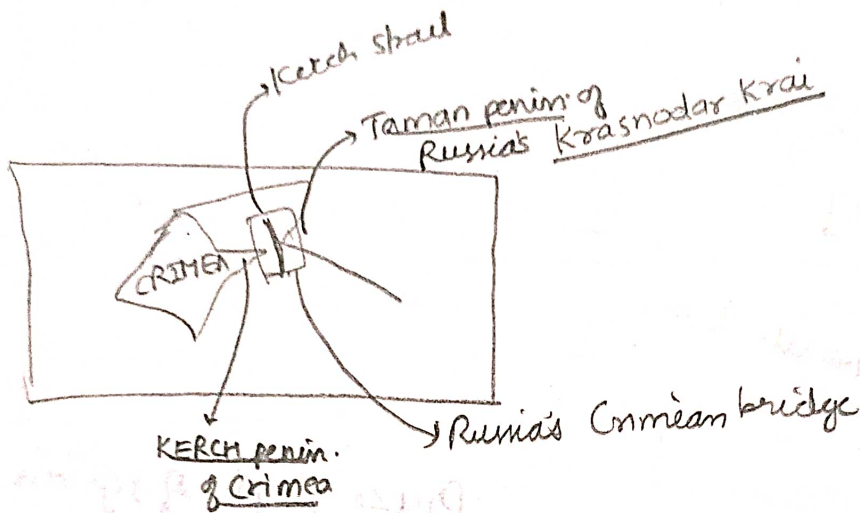 Kerch strait
Taman penin. of
Russia's Krasnodar Krai
CRIMEA
Russia's Crimean bridge
KERCH penin.
of Crimea